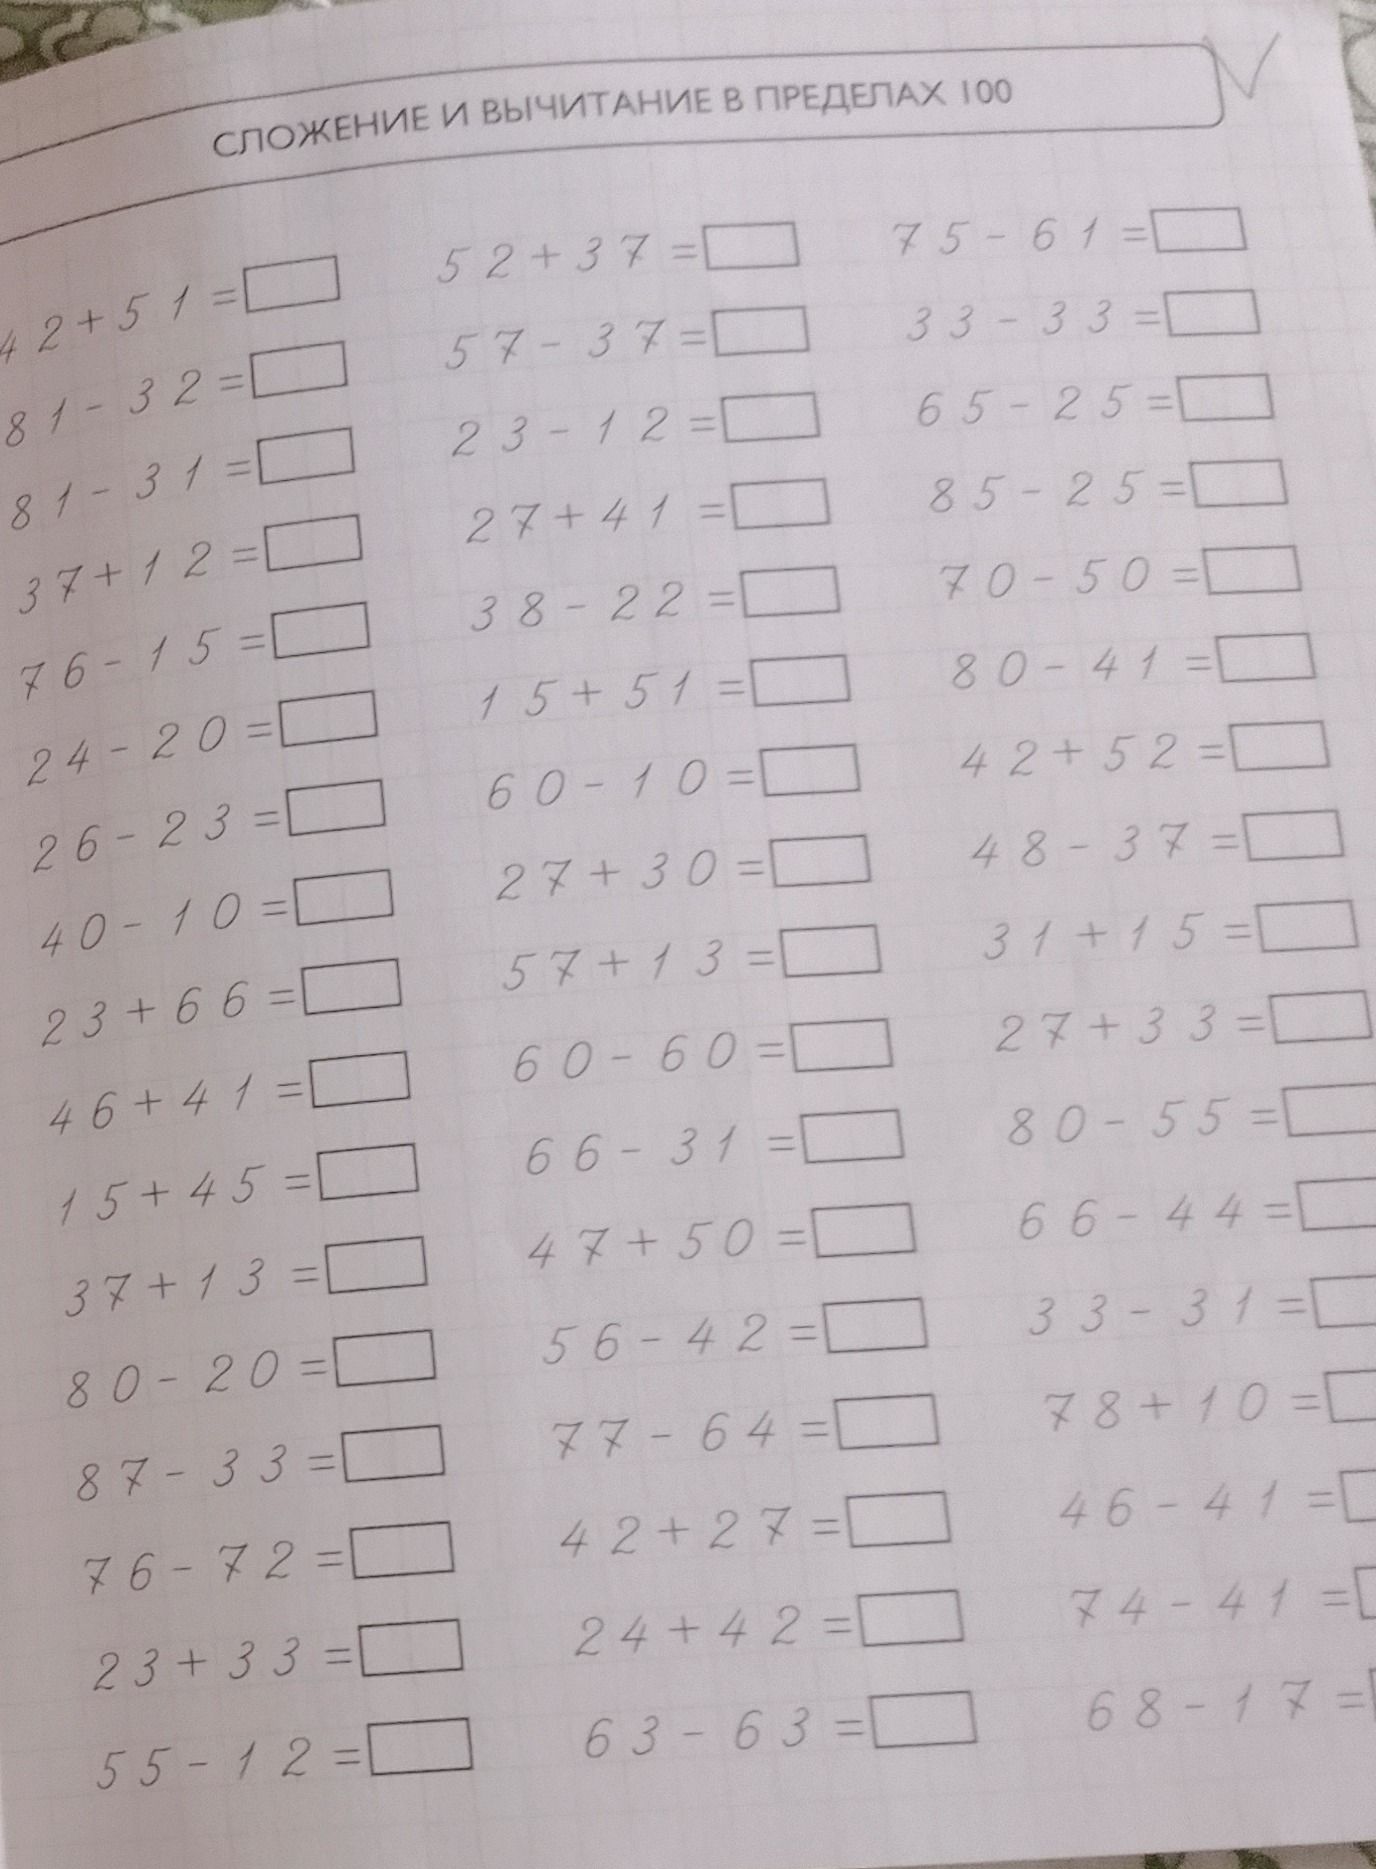 СЛОЖЕНИЕ И ВЫЧИТАНИЕ В ПРЕДЕЛАХ 100
42+51=
81-32=
81-31=
37+12=
76-15=
24-20=
26-23=
40-10=
23+66=
46+41=
15+45=
37+13=
80-20=
87-33=
76-72=
23+33=
55-12=
52+37=
57-37=
23-12=
27+41=
38-22=
15+51=
60-10=
27+30=
57+13=
60-60=
66-31=
47+50=
56-42=
77-64=
42+27=
24+42=
63-63=
75-61=
33-33=
65-25=
85-25=
70-50=
80-41=
42+52=
48-37=
31+15=
27+33=
80-55=
66-44=
33-31=
78+10=
46-41=
74-41=
68-17=